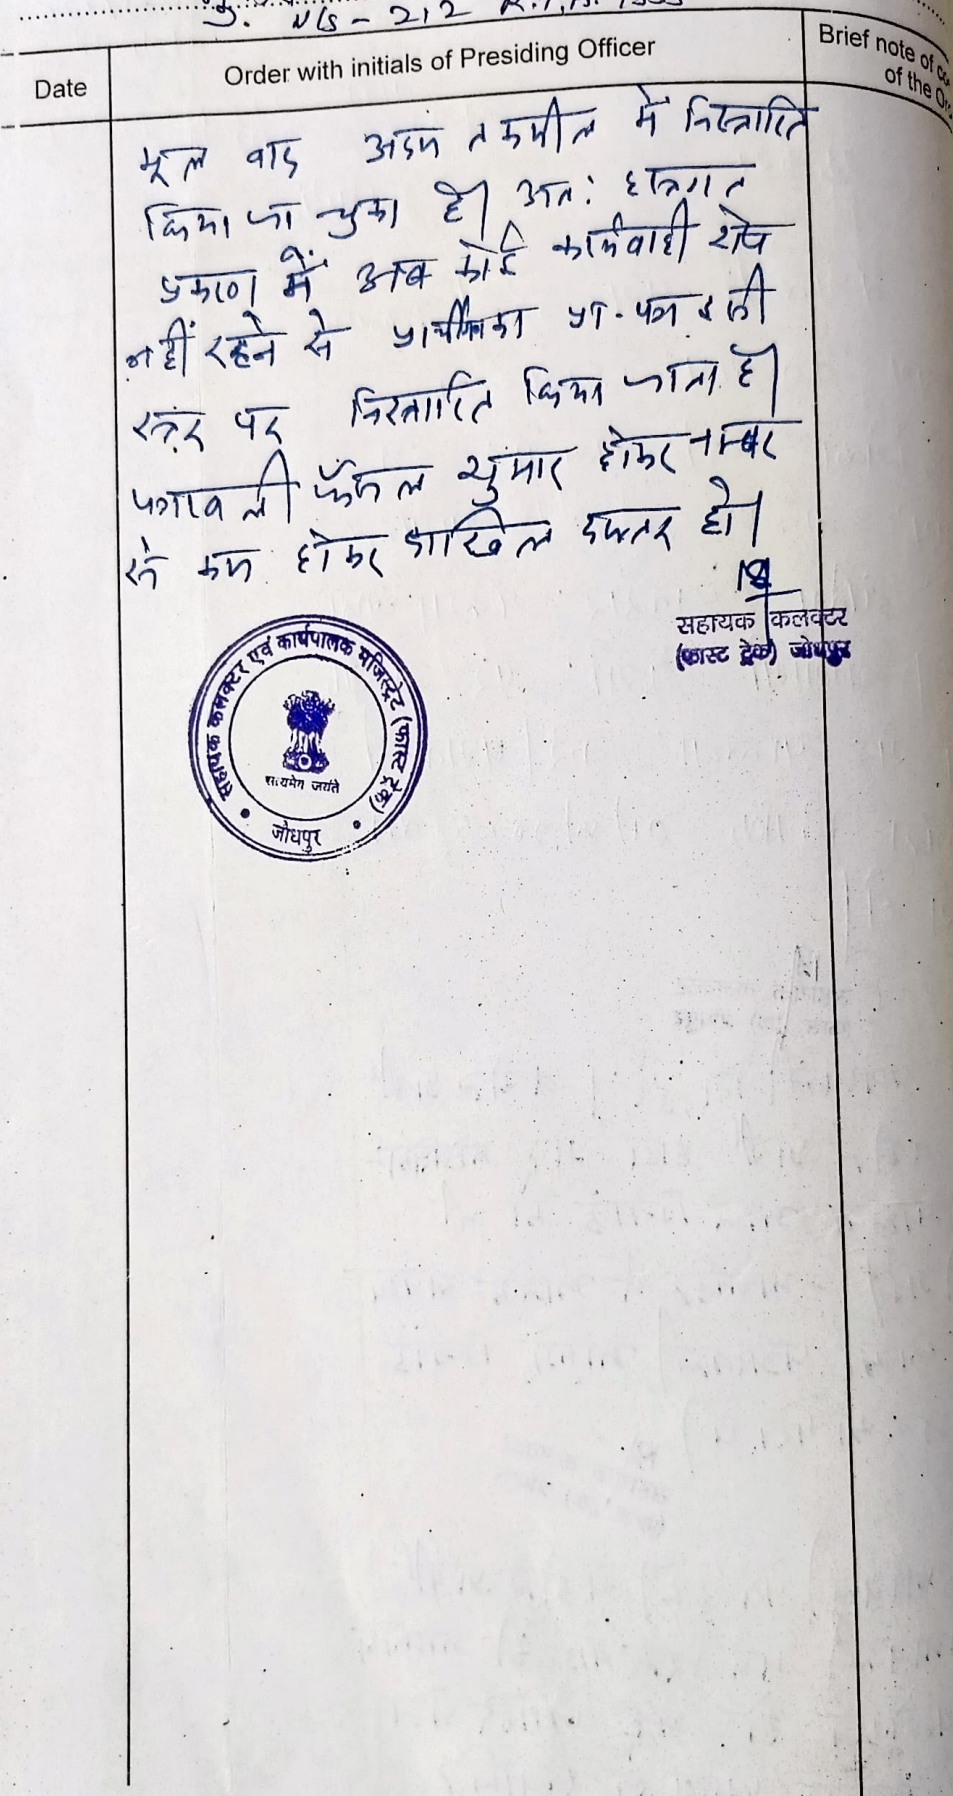 U/S - 212
Date
Order with initials of Presiding Officer
Brief note of
of the
मूल वाद अदम तकमील में निस्तारित
किया जा चुका है। अतः हस्तगत
प्रकरण में अब कोई कार्यवाही शेष
नहीं रहने से प्रार्थी का प्रा.पत्र इसी
स्तर पर निस्तारित किया जाता है।
पत्रावली फैसल शुमार होकर नम्बर
से कम होकर दाखिल दफ्तर हो।
सहायक कलक्टर
(फास्ट ट्रेक) जोधपुर
सहायक कलक्टर एवं कार्यपालक मजिस्ट्रेट (फास्ट ट्रेक)
सत्यमेव जयते
जोधपुर